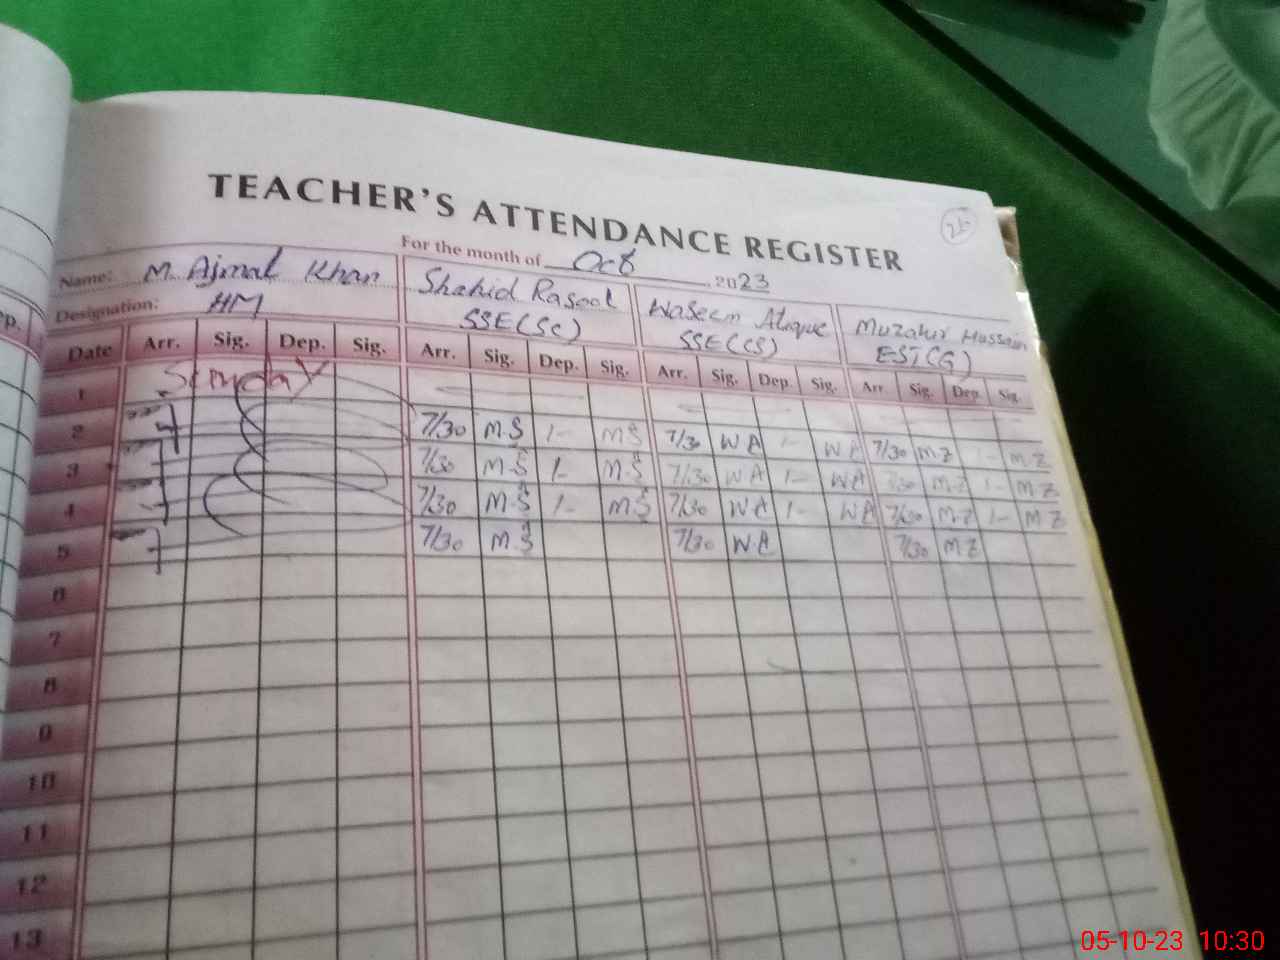 TEACHER'S ATTENDANCE REGISTER
For the month of Oct 2023
Name: M. Ajmal Khan Shahid Rasool Waseem Atique Muzahir Hussain
Designation: HM SSE(SC) SSE(CS) EST(G)
Date Arr. Sig. Dep. Sig. Arr. Sig. Dep. Sig. Arr. Sig. Dep. Sig. Arr. Sig. Dep. Sig.
1 Sunday
2 7/30 M.S 1- M.S 7/30 W A 1- W A 7/30 M.Z 1- M.Z
3 7/30 M.S 1- M.S 7/30 W A 1- W A 7/30 M.Z 1- M.Z
4 7/30 M.S 1- M.S 7/30 W A 1- W A 7/30 M.Z 1- M Z
5 7/30 M.S 7/30 W.A 7/30 M.Z
6
7
8
9
10
11
12
13
05-10-23 10:30